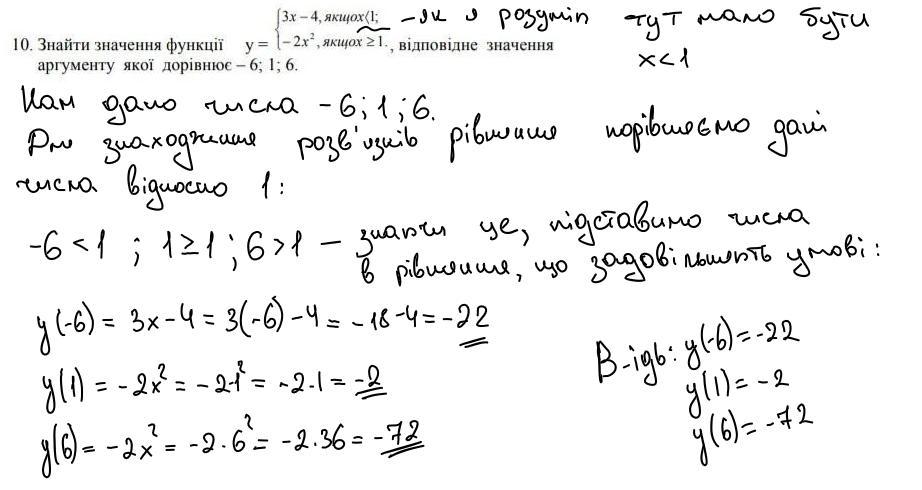 10. Знайти значення функції y = {3x − 4, якщо x⟨1; − 2x², якщо x ≥ 1. , відповідне значення
аргументу якої дорівнює – 6; 1; 6.
- як я розумію тут мало бути
x<1
Нам дано числа -6; 1; 6.
Для знаходження розв'язків рівняння порівняємо дані
числа відносно 1:
-6 < 1 ; 1 ≥ 1 ; 6 > 1 – знаючи це, підставимо числа
в рівняння, що задовільняють умові:
y(-6) = 3x - 4 = 3(-6) - 4 = -18 - 4 = -22
y(1) = -2x² = -2·1² = -2·1 = -2
y(6) = -2x² = -2·6² = -2·36 = -72
В-ідь: y(-6) = -22
y(1) = -2
y(6) = -72